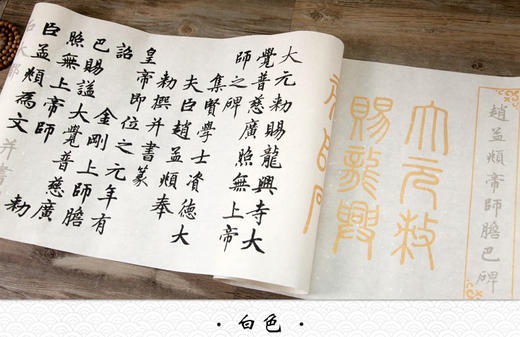 趙孟頫帝師膽巴碑
大元敕
賜龍興
大元勅賜龍興寺大
覺普慈廣照無上帝
師之碑
集賢學士資德大
夫臣趙孟頫奉
勅撰并書篆
皇帝即位之元年有
詔 金剛上師膽
巴賜謚大覺普慈廣
照無上帝師 勅
臣孟頫為文并書
· 白色 ·